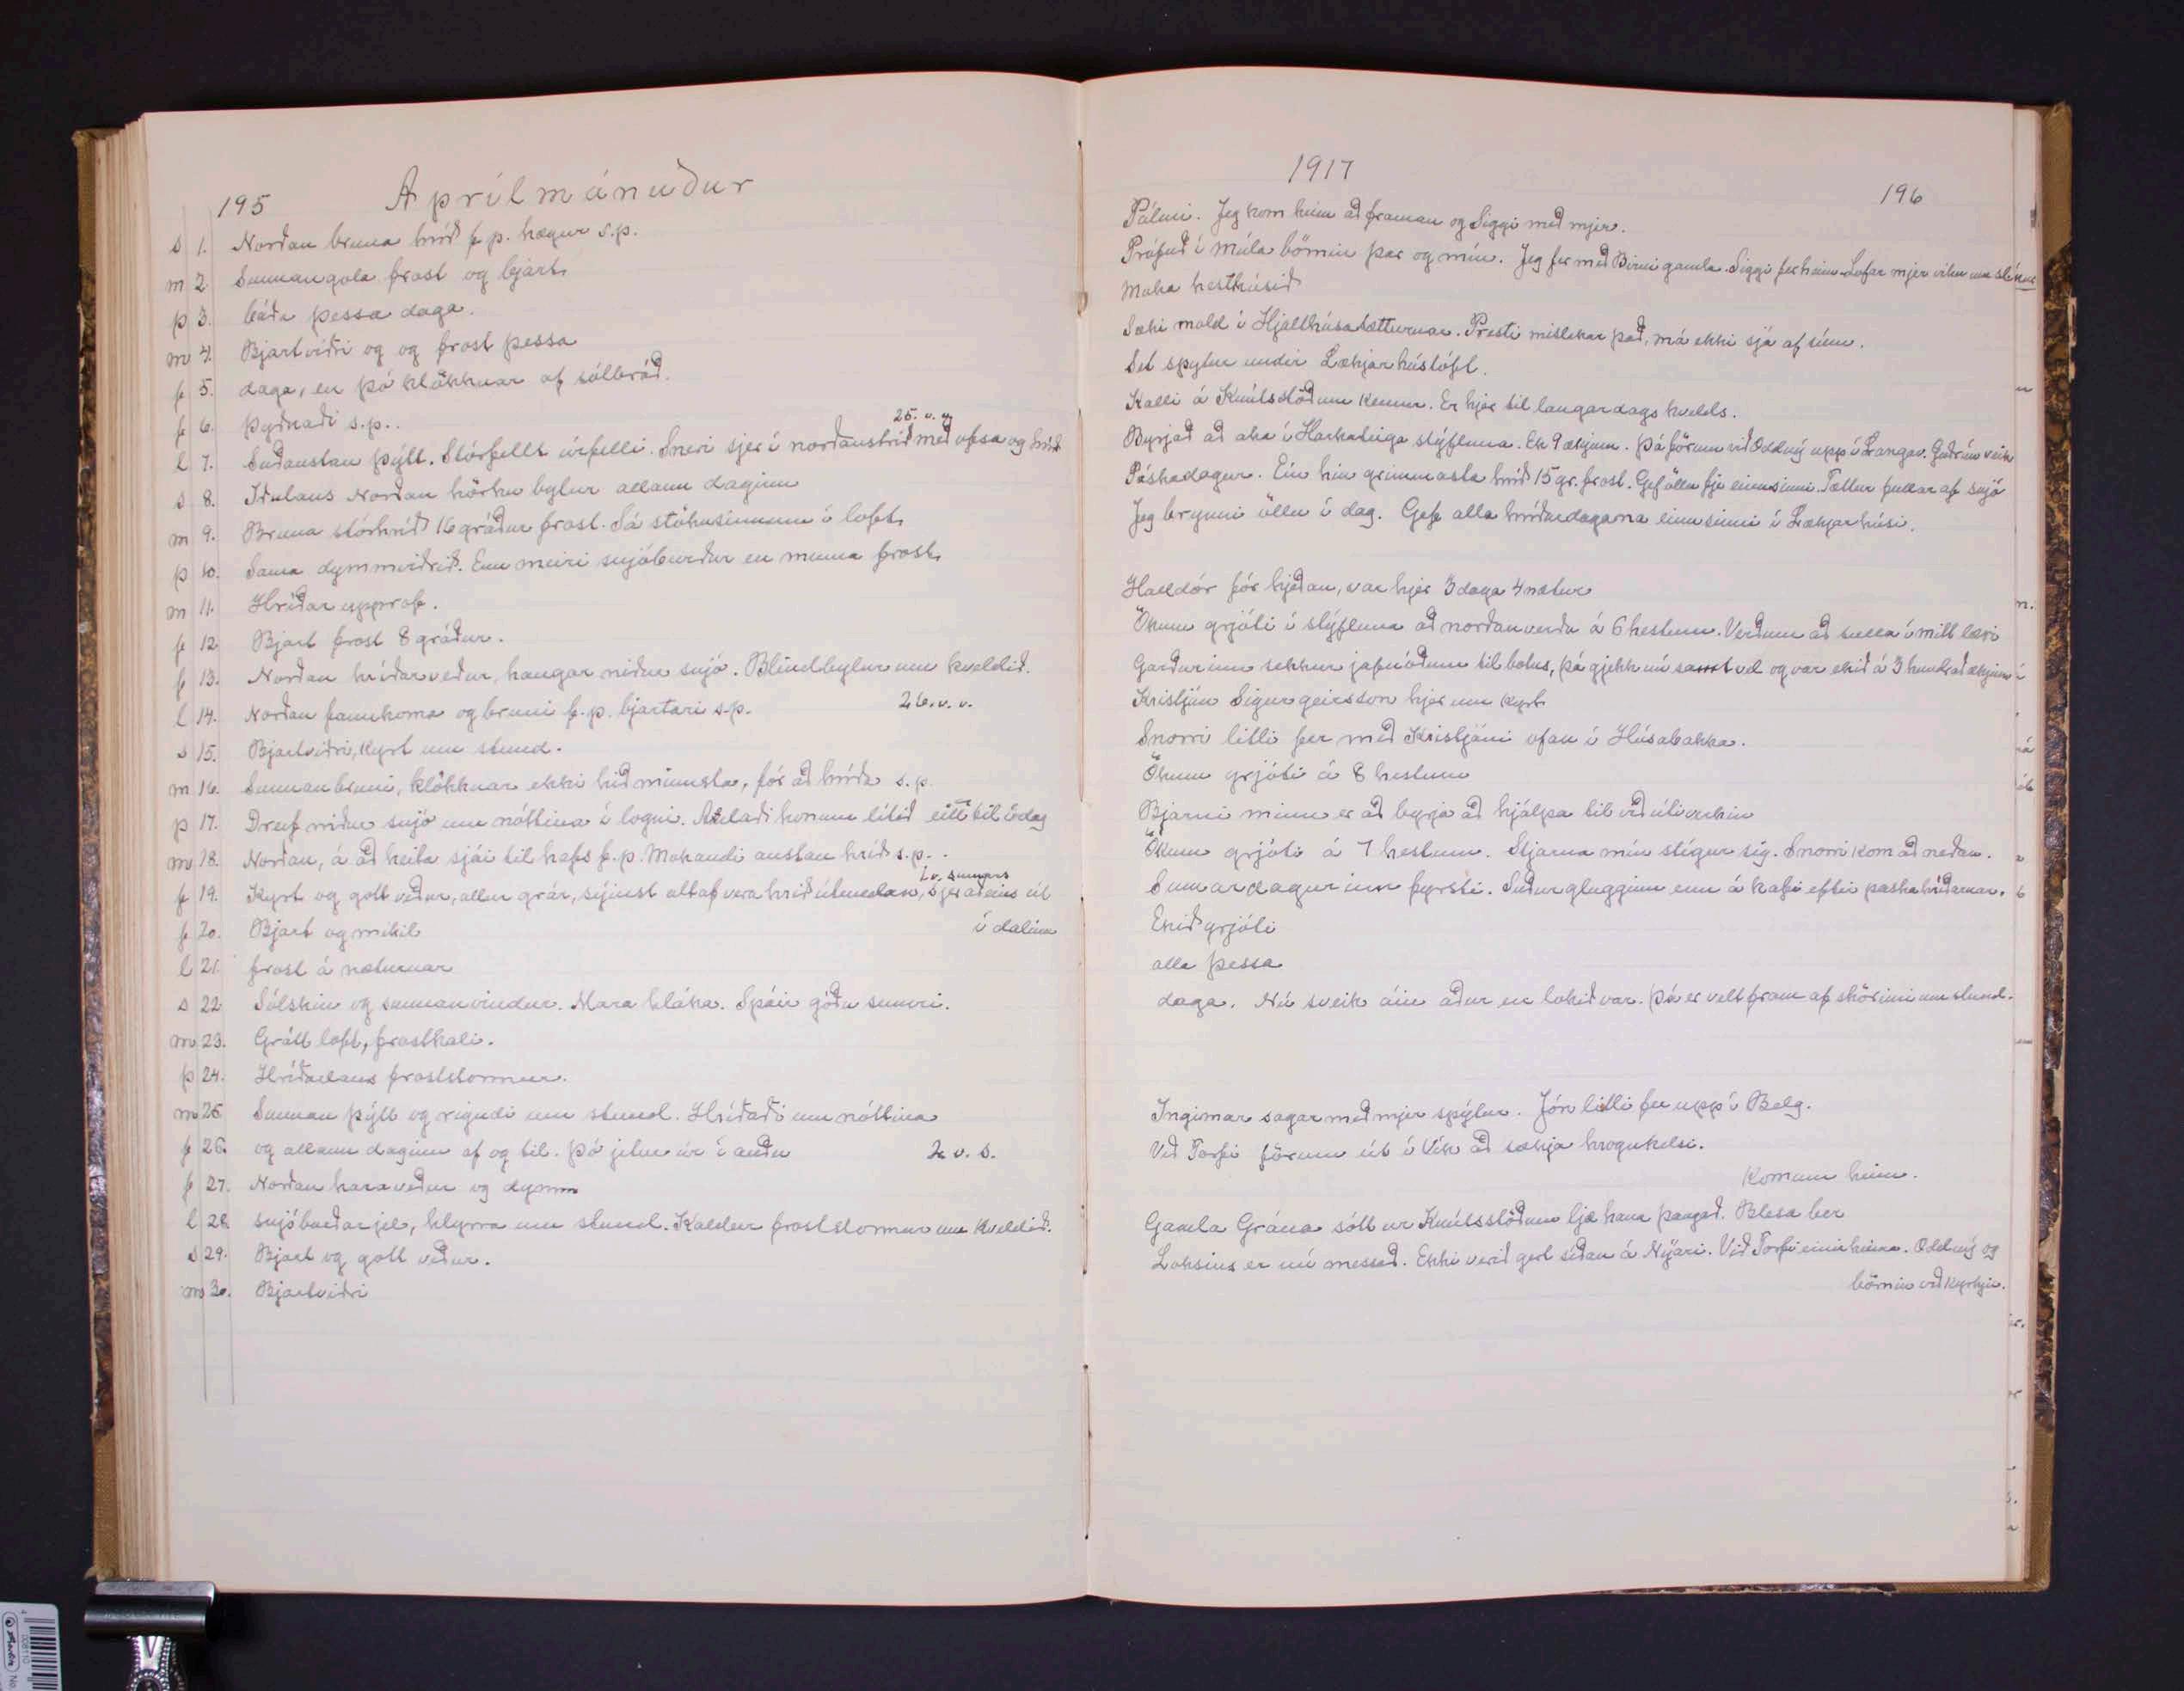 195
Aprílmánuður
s 1. Norðan bruna hríð f.p. hægur s.p.
m 2. Sunnangola frost og bjart
þ 3. báða þessa daga.
m 4. Bjartviðri og og frost þessa
f 5. daga, en þó klökknar af sólbráð.
f 6. Þyðnaði s.p..
25. v. v.
l 7. Suðaustan þýtt. Stórfellt úrfelli. Sneri sjer í norðaustrið með ofsa og hríð
s 8. Iðulaus Norðan hörku bylur allann daginn
m 9. Bruna stórhríð 16 gráður frost. Sá stöku sinnum í loft
þ 10. Sama dymmviðrið. Enn meiri snjóburður en minna frost
m 11. Hríðar upprof.
f 12. Bjart frost 8 gráður.
f 13. Norðan hríðarveður, hangar niður snjó. Blindbylur um kveldið.
l 14. Norðan fannkoma og bruni f.p. bjartari s.p. 26. v. v.
s 15. Bjartviðri, kyrt um stund.
m 16. Sunnan bruni, klökknar ekki hið minnsta, fór að hríða s.p.
þ 17. Dreif niður snjó um nóttina í logni. honum lítið eitt til í dag
m 18. Norðan, á að heita sjái til hafs f.p. Mokandi austan hríð s.p..
1. v. sumars
f 19. Kyrt og gott veður, allur grár, sýnist altaf vera hríð útundan, sjer aðeins út
f 20. Bjart og mikil í dalinn
l 21. frost á næturnar
s 22. Sólskin og sunnanvindur. Mara hláka. Spáir góðu sumri.
m 23. Grátt loft, frostkali.
þ 24. Hríðarlaus froststormur.
m 25. Sunnan þýtt og rigndi um stund. Hríðaði um nóttina
f 26. og allann daginn af og til. Þó jetur úr í auðu 2 v. s.
f 27. Norðan kara veður og dymm
l 28. snjóbarðar jel, hlyrra um stund. Kaldur froststormur um kveldið.
s 29. Bjart og gott veður.
m 30. Bjartviðri
1917
196
Pálmi. Jeg kom heim að framan og Siggi með mjer.
Prófað í Múla börnin þar og mín. Jeg fer með Birni gamla. Siggi fer heim. Lofar mjer viku um
Moka hesthúsið
Sæki mold í Hjallhúsatætturnar. Presti mislíkar það, má ekki sjá af sínu.
Set spýtur undir Lækjarhústóft.
Kalli á Knútsstöðum kennir. Er hjer til laugardags kvelds.
Byrjað að aka í Harkaleiga stýfluna. Ek 9 ækjum. Þá förum við Oddný upp í Langav. Guðrún veik
Páskadagur. Ein hin grimmasta hríð 15 gr. frost. Gef öllu fje einusinni. Tættur fullar af snjó
Jeg brynni öllu í dag. Gef alla hríðardagana einu sinni í Lækjarhúsi.
Halldór fór hjeðan, var hjer 3 daga 4 nætur
Ökum grjóti í stýfluna að norðanverðu á 6 hestum. Verðum að sulla í mitt læri
Garðurinn sekkur jafnóðum til botns, þá gjekk nú samt vel og var ekið á 3 hundrað ækjum í
Kristján Sigurgeirsson hjer um kyrt
Snorri litli fer með Kristjáni ofan í Húsabakka.
Ökum grjóti á 8 hestum
Bjarni minn er að byrja að hjálpa til við útiverkin
Ökum grjóti á 7 hestum. Stjarna mín stígur sig. Snorri kom að neðan.
Sumardagurinn fyrsti. Suðurglugginn enn á kafi eftir páskahríðarnar.
Ekið grjóti
alla þessa
daga. Nú sveik áin áður en lokið var. Þá er velt fram af skörinni um stund.
Ingimar sagar með mjer spýtur. Jón litli fer upp í Belg.
Við Torfi förum út í Vík að sækja hrognkelsi.
Komum heim.
Gamla Grána sótt úr Knútsstöðum ljæ hana þangað. Blesa ber
Loksins er nú messað. Ekki verið gert síðan á Nýári. Við Torfi einir heima. Oddný og
börnin við kyrkju.